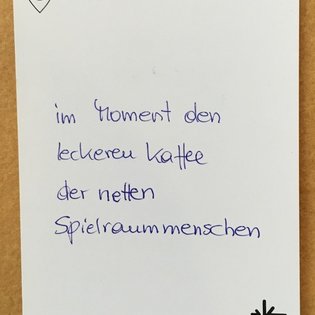 im Moment den
leckeren Kaffee
der netten
Spielraummenschen